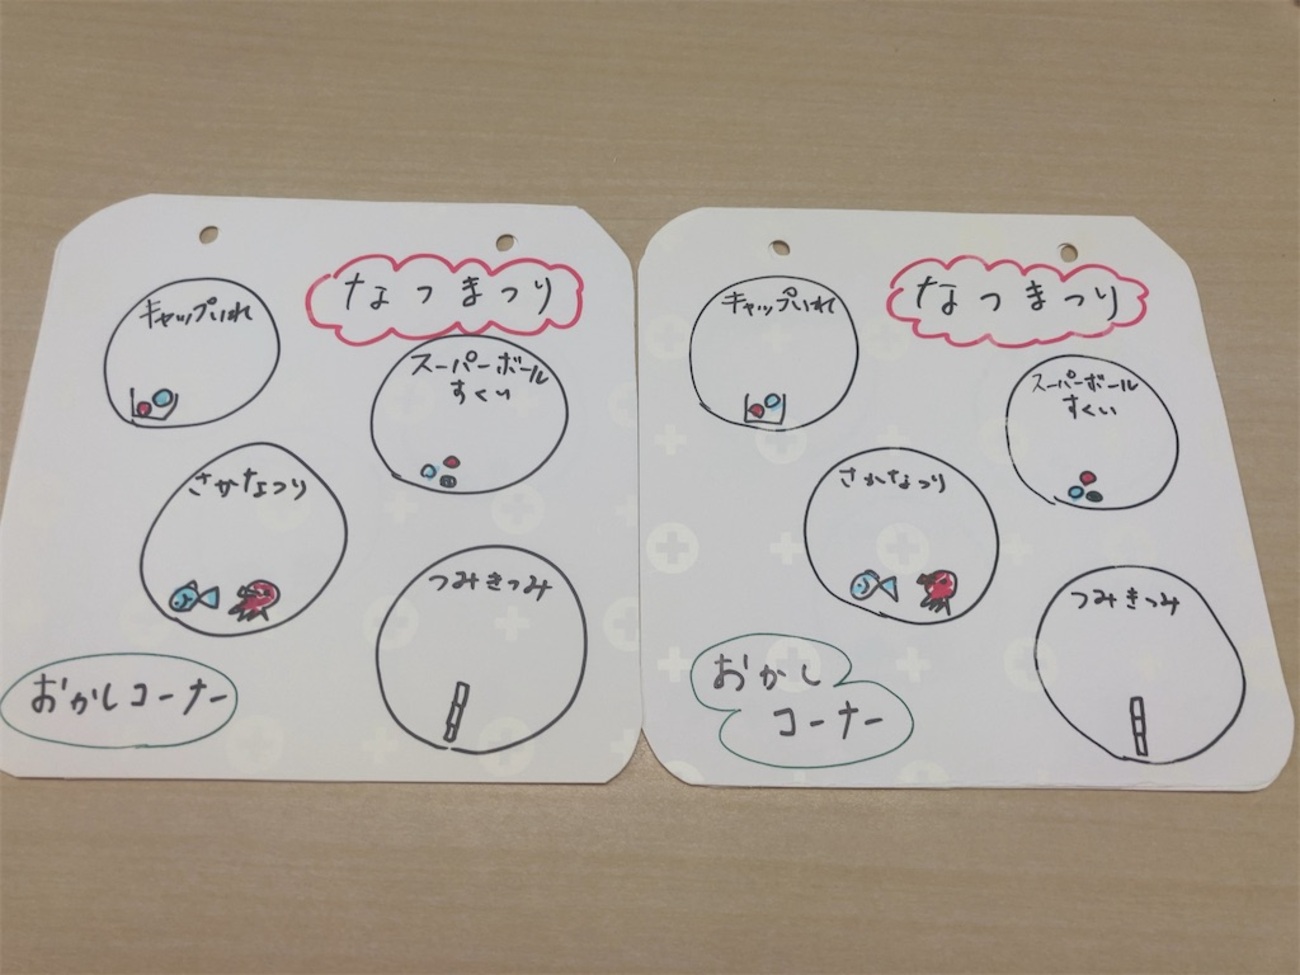 なつまつり
キャップいれ
スーパーボール
すくい
さかなつり
つみきつみ
おかしコーナー
なつまつり
キャップいれ
スーパーボール
すくい
さかなつり
つみきつみ
おかし
コーナー